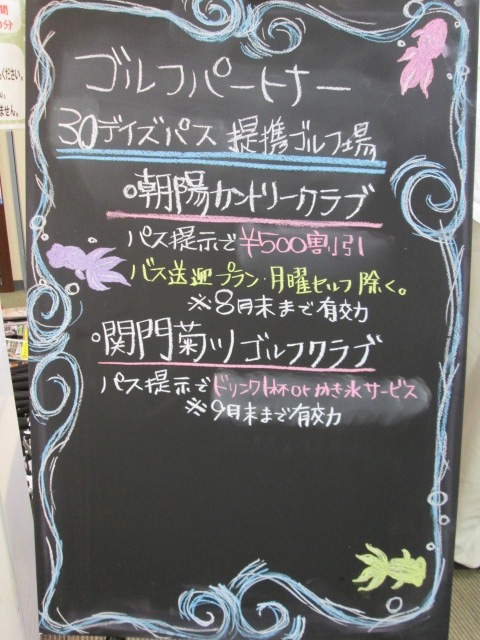 ゴルフパートナー
30デイズパス 提携ゴルフ場
○朝陽カントリークラブ
パス提示で ¥500割引
バス送迎プラン・月曜セルフ除く。
※8月末まで有効力
○関門菊川ゴルフクラブ
パス提示でドリンク1杯orかき氷サービス
※9月末まで有効力